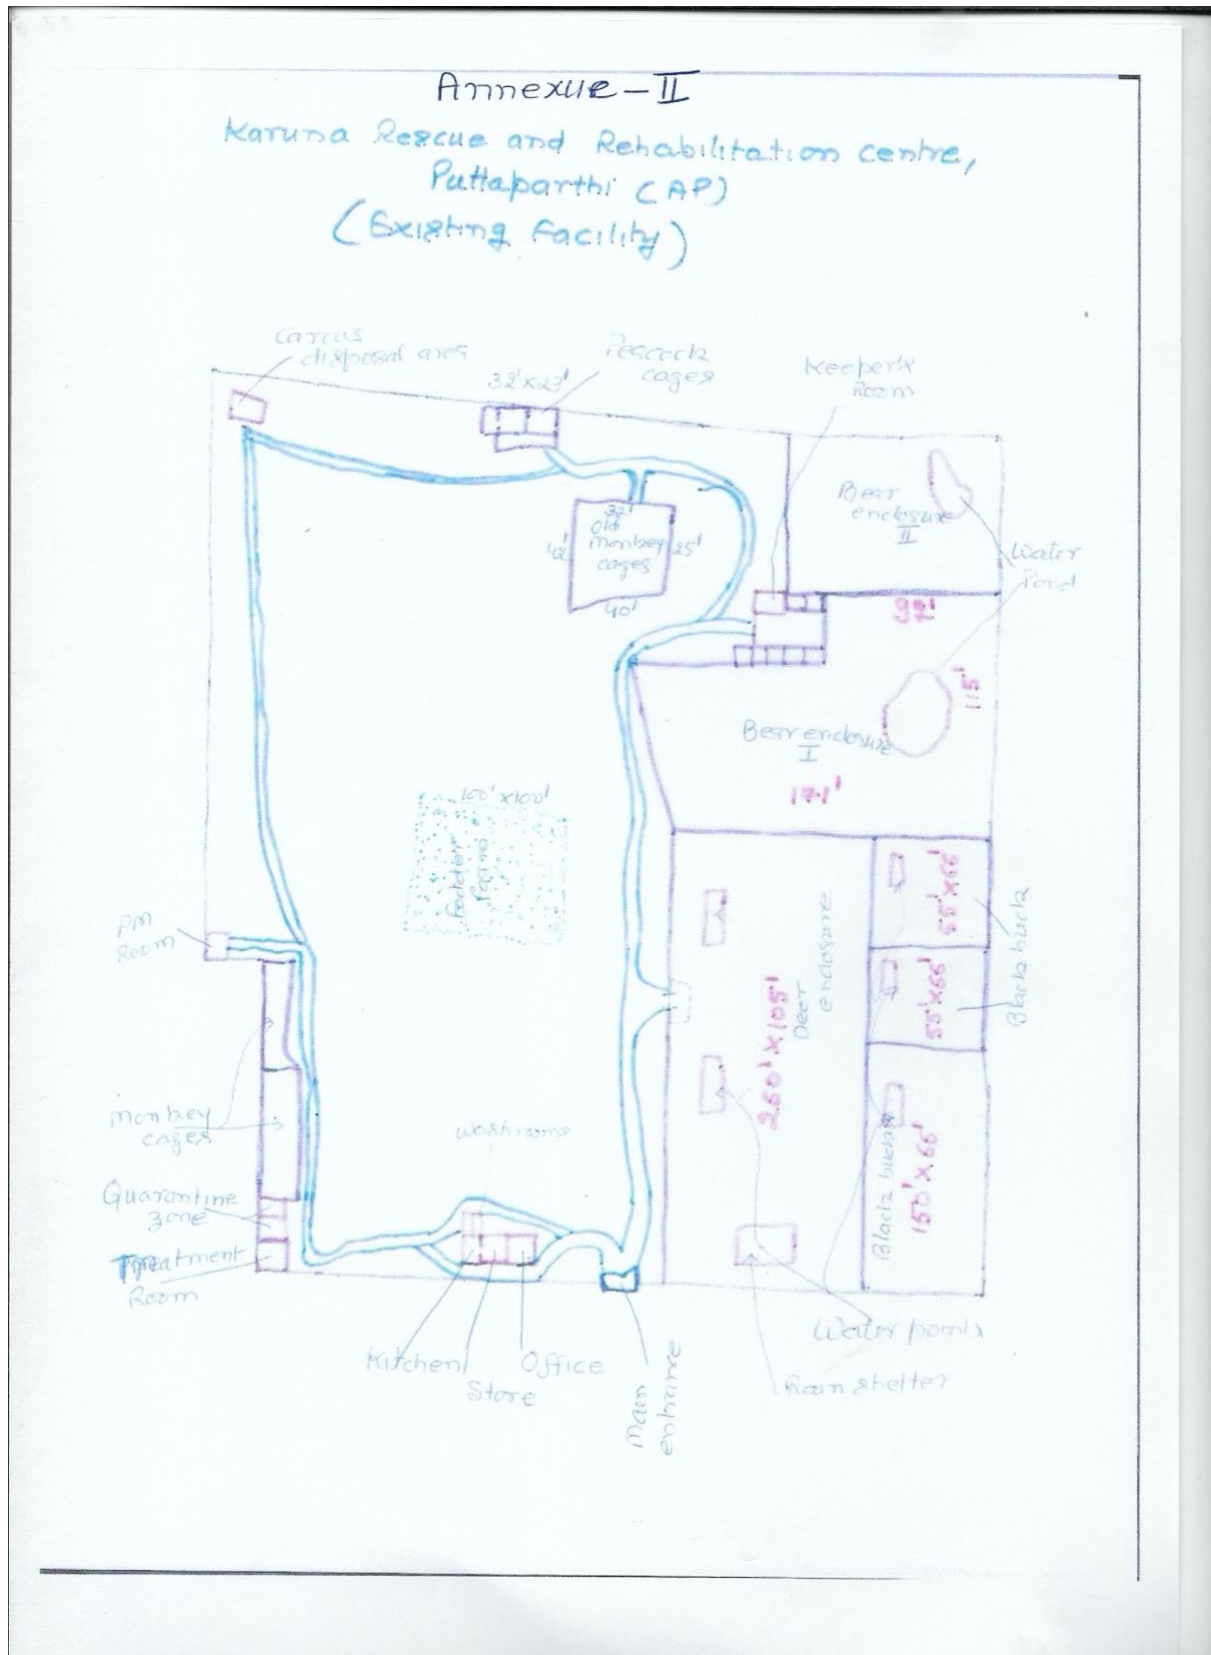 Annexue-II
Karuna Rescue and Rehabilitation centre,
Puttaparthi (AP)
(Existing Facility)
Carcus
disposal area
32'x23'
Peacock
cages
Keeper's
Room
Bear
enclosure
II
Water
Pond
32'
Old
monkey
cages
42'
25'
40'
97'
115'
Bear enclosure
I
171'
100' x100'
Fodder
Farm
PM
Room
Deer
enclosure
260' x 105'
55' x 66'
55' x 66'
Black buck
Black bucks
150' x 66'
monkey
cages
Washrooms
Quarantine
zone
Treatment
Room
Kitchen
Store
Office
Main
entrance
Water points
Rain shelter